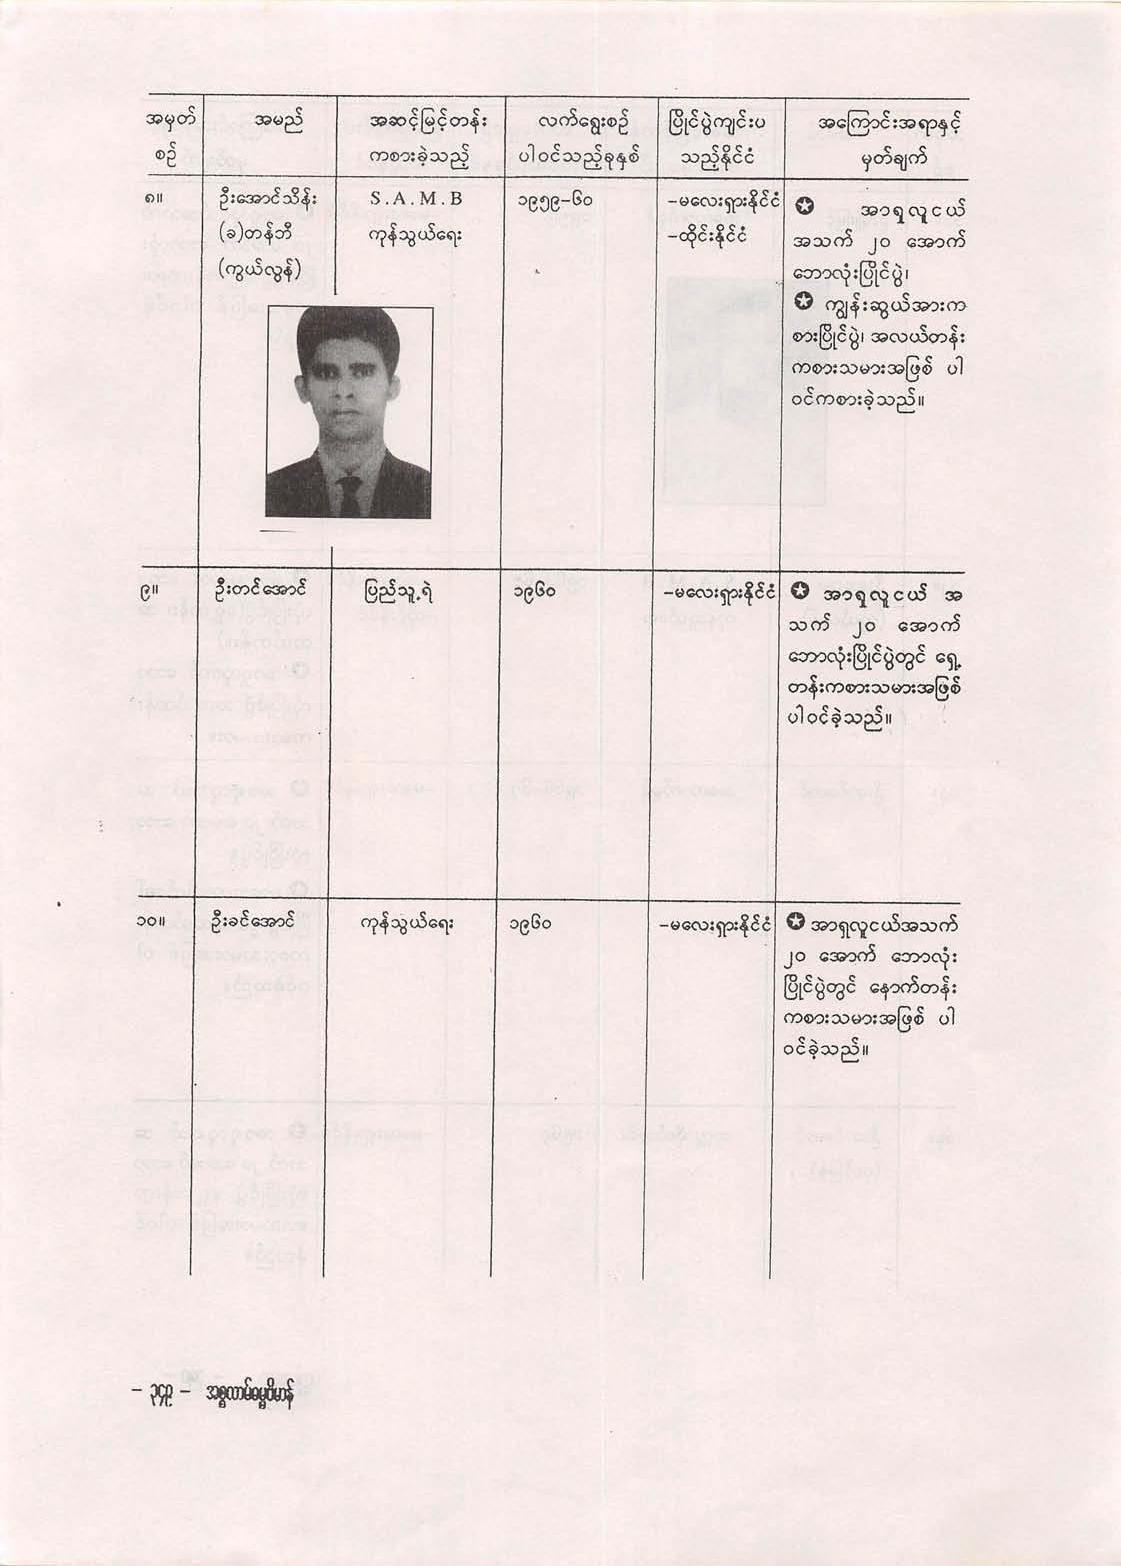 အမှတ်စဉ် အမည် အဆင့်မြင့်တန်း လက်ရွေးစဉ် ပြိုင်ပွဲကျင်းပ အကြောင်းအရာနှင့်
ကစားခဲ့သည့် ပါဝင်သည့်ခုနှစ် သည့်နိုင်ငံ မှတ်ချက်
၈။ ဦးအောင်သိန်း S.A.M.B ၁၉၅၉-၆၀ -မလေးရှားနိုင်ငံ ✪ အာရှလူငယ်
(ခ)တန်ဘီ ကုန်သွယ်ရေး -ထိုင်းနိုင်ငံ အသက် ၂၀ အောက်
(ကွယ်လွန်) ဘောလုံးပြိုင်ပွဲ၊
✪ ကျွန်းဆွယ်အားက
စားပြိုင်ပွဲ၊ အလယ်တန်း
ကစားသမားအဖြစ် ပါ
ဝင်ကစားခဲ့သည်။
၉။ ဦးတင်အောင် ပြည်သူ့ရဲ ၁၉၆၀ -မလေးရှားနိုင်ငံ ✪ အာရှလူငယ် အ
သက် ၂၀ အောက်
ဘောလုံးပြိုင်ပွဲတွင် ရှေ့
တန်းကစားသမားအဖြစ်
ပါဝင်ခဲ့သည်။
၁၀။ ဦးခင်အောင် ကုန်သွယ်ရေး ၁၉၆၀ -မလေးရှားနိုင်ငံ ✪ အာရှလူငယ်အသက်
၂၀ အောက် ဘောလုံး
ပြိုင်ပွဲတွင် နောက်တန်း
ကစားသမားအဖြစ် ပါ
ဝင်ခဲ့သည်။